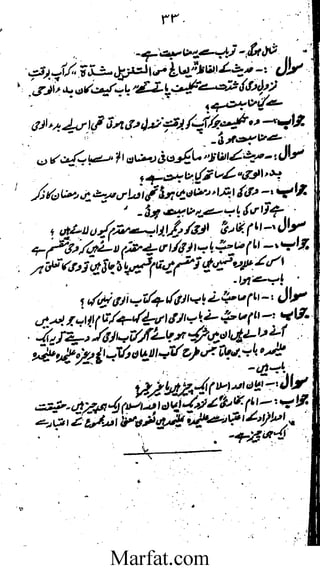 ۳۳
شامل ہوگی۔ تو باب سے یہ مناسبت ہے۔
سوال :- حدیث کے الفاظ "یعالج من التنزیل شدۃ" کہ آپ بوقتِ
نزول وحی کی شدت سے تکلیف پاتے تھے" باب کیف کان بدء الوحی
سے کیا مناسبت ہے؟
جواب :- وہ تکلیف جو کہ آپ کو بوقت نزول وحی ہوتی تھی اس لیے بدء الوحی
سے مناسبت ہوئی۔
سوال :- حدیث کے الفاظ "مایکون فی رمضان الخ" سے باب کیف کان
بدء الوحی کے ساتھ کیا مناسبت ہے؟
جواب :- وحی کی ابتداء رمضان میں ہوئی تھی اور اس حدیث میں رمضان کا ذکر
ہے تو اس کی باب سے یہ مناسبت ہوئی۔
سوال :- امام بخاریؒ الوحی کو دیگر ابواب سے مقدم کیوں لائے ہیں؟
جواب :- امام صاحبؒ باب الوحی کو اس لیے مقدم لائے ہیں کہ وحی مقسم ہے
اس کے علاوہ قسمیں تھی تو مقسم میں تمام قسمیں پائی جاتی ہیں تو وحی کا تعلق ہر
باب سے ہوا۔
سوال :- امام صاحبؒ نے باب الوحی کہا ہے کتاب الوحی نہیں کہا؟
جواب :- امام صاحبؒ نے باب الوحی اس لیے کہا ہے کہ تمام ابواب جو بعد میں
آنے والے ہیں ان میں شریک ہو جائے اگر کتاب الوحی کہہ دیتے تو یہ ایک
علیحدہ باب بن جاتا جس طرح کتاب الایمان و کتاب الحج وغیرہ علیحدہ علیحدہ
باب ہیں۔
سوال :- ایمان اور اسلام ایک چیز ہیں یا غیر غیر؟
جواب :- امام بخاریؒ کے نزدیک ایمان اور اسلام ایک ہی چیز ہیں۔ حقیقت
اور افراد کے اعتبار سے علیحدہ علیحدہ ہیں لغوی معنی اور مجموع کے اعتبار سے
ایک ہی چیز ہے۔
Marfat.com